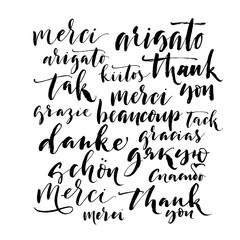 merci arigato
arigato kiitos thank
tak merci you
grazie beaucoup tack
danke gracias
schön дякую
спасибо
Merci thank
merci you